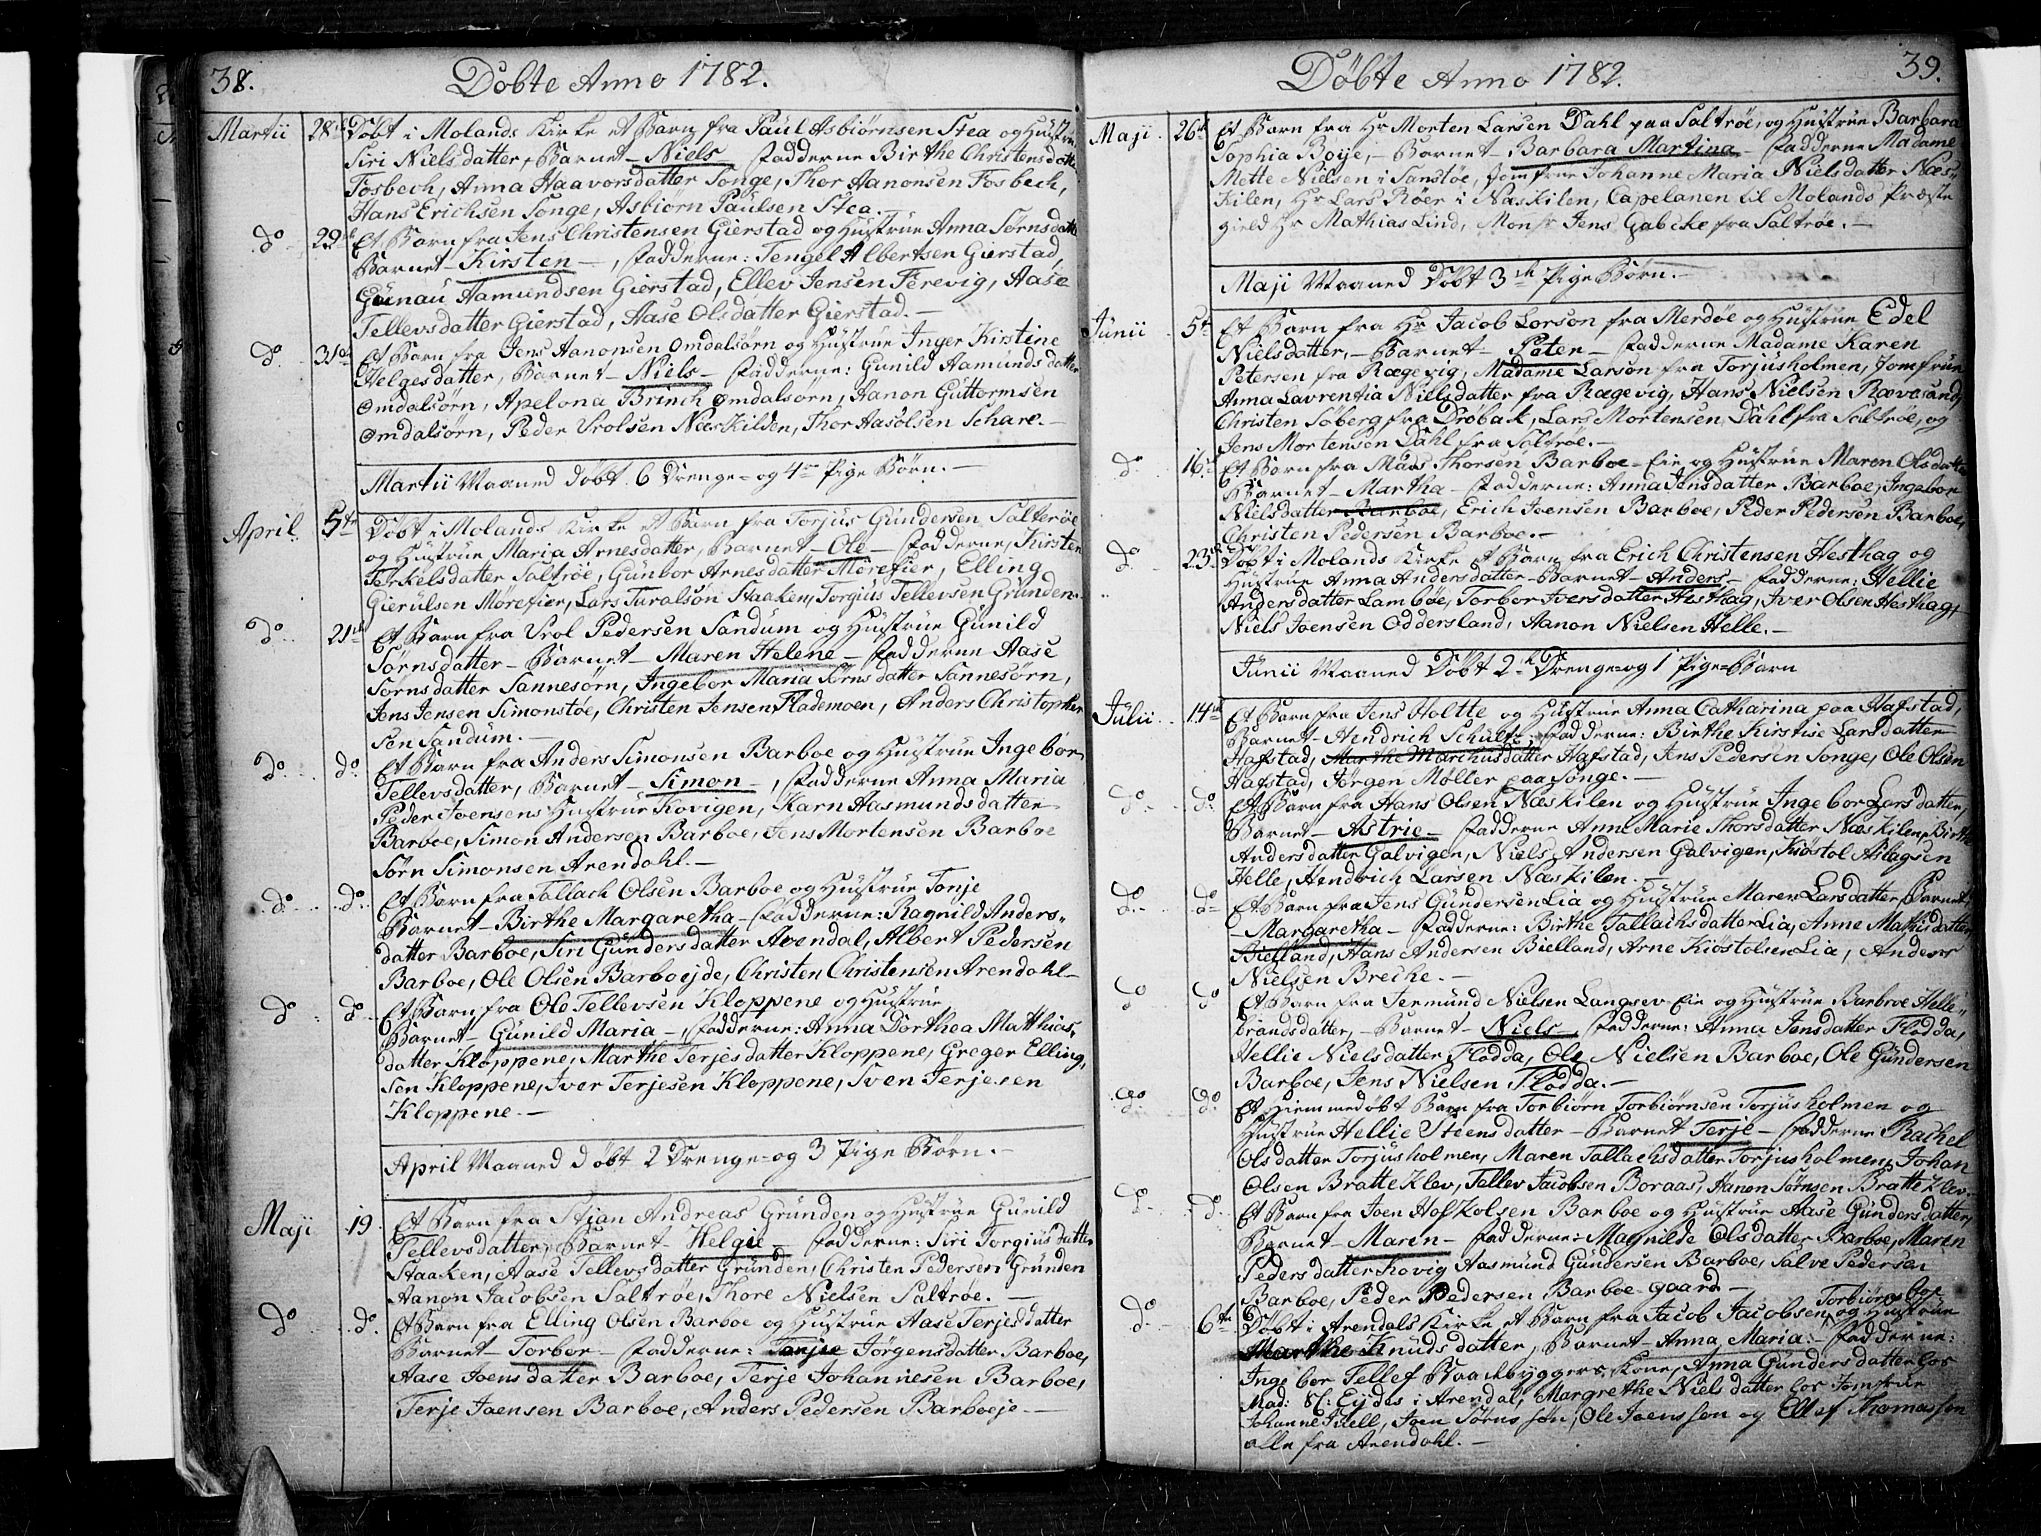 38.
Døbte Anno 1782.
Martii 28de Døbt i Molands Kirke et Barn fra Paul Asbiørnsen Stea og Hustrue
Siri Nielsdatter, Barnet - Niels - Fadderne Birthe Christensdatter
Fosbech, Anna Haavorsdatter Songe, Thor Aanonsen Fosbech,
Hans Erichsen Songe, Asbiørn Paulsen Stea. -
do 29de Et Barn fra Jens Christensen Gierstad og Hustrue Anna Sørnsdatter
Barnet - Kirsten -, Fadderne: Tengel Albertsen Gierstad,
Gunau Aamundsen Gierstad, Ellev Jensen Ferevig, Aase
Tellevsdatter Gierstad, Aase Olsdatter Gierstad. -
do. 31de Et Barn fra Jens Aanonsen Omdalsørn og Hustrue Inger Kirstine
Helgesdatter, Barnet - Niels - Fadderne: Gunild Aamundsdatter
Omdalsørn, Apelona Brinch Omdalsørn, Aanon Guttormsen
Omdalsørn, Peder Vrolsen Næskilden, Thor Aasolsen Schare. -
Martii Maaned Døbt. 6 Drenge- og 4re Pige Børn. -
April. 5te Døbt i Molands Kirke et Barn fra Torjus Gundersen Salterøe
og Hustrue Maria Arnesdatter, Barnet - Ole - Fadderne, Kirsten
Terkelsdatter Saltrøe, Gunbor Arnesdatter Mørefier, Elling
Gierulsen Mørefier, Lars Turalsøn Staaken, Torgius Tellevsen Grunden.
do 21de Et Barn fra Vrol Pedersen Sandum og Hustrue Gunild
Sørnsdatter - Barnet - Maren Helene - Fadderne Aase
Sørnsdatter Sannesørn, Ingebor Maria Sørnsdatter Sannesørn,
Jens Jensen Simonstøe, Christen Jensen Flademoen, Anders Christopher
sen Sandum. -
do do. Et Barn fra Anders Simonsen Barboe og Hustrue Ingebor
Tellevsdatter, Barnet - Simon -, Fadderne Anna Maria
Peder Joensens Hustrue Kovigen, Karn Aasmundsdatter
Barboe, Simon Andersen Barboe, Jens Mortensen Barboe
Sørn Simonsen Arendahl. -
do do. Et Barn fra Tallach Olsen Barboe og Hustrue Tonje
Barnet - Birthe Margaretha - Fadderne: Ragnild Anders-
datter Barboe, Siri Gundersdatter Arendal, Albert Pedersen
Barboe, Ole Olsen Barboejde, Christen Christensen Arendahl -
do do Et Barn fra Ole Tellevsen Kloppene og Hustrue
Barnet - Gunild Maria -, Fadderne: Anna Dorthea Matthias-
datter Kloppene, Marthe Terjesdatter Kloppene, Greger Elling-
sen Kloppene, Iver Terjesen Kloppene, Sven Terjesen
Kloppene. -
April Maaned døbt 2 Drenge- og 3 Pige Børn. -
Maji 19. Et Barn fra Stian Andreas Grunden og Hustrue Gunild
Tellevsdatter, Barnet Helgie - Fadderne: Siri Torgiusdatter
Staaken, Aase Tellevsdatter Grunden, Christen Pedersen Grunden
Aanon Jacobsen Saltrøe, Thore Nielsen Saltrøe. -
do do. Et Barn fra Elling Olsen Barboe og Hustrue Aase Terjesdatter
Barnet - Torbor - Fadderne: Tonjie Jørgensdatter Barboe,
Aase Joensdatter Barboe, Terje Johannesen Barboe,
Terje Joensen Barboe, Anders Pedersen Barboeje. -
39.
Døbte Anno 1782.
Maji. 26de Et Barn fra Hr Morten Larsen Dahl paa Saltrøe, og Hustrue Barbara
Sophia Boije, - Barnet - Barbara Martina - Fadderne Madame
Mette Nielsen i Sanstøe, Jomfrue Johanne Maria Nielsdatter Næs-
kilen, Hr Lars Røer i Næskilen, Capelanen til Molands Præste
gield Hr Mathias Lind, Monsr Jens Gabcke fra Saltrøe. -
Maji Maaned Døbt 3de Pige Børn. -
Junii 5te Et Barn fra Hr Jacob Lorson fra Merdøe og Hustrue Edel
Nielsdatter, - Barnet - Peter - Fadderne Madame Karen
Petersen fra Rægevig, Madame Larson fra Torjusholmen, Jomfrue
Anna Lavrentia Nielsdatter fra Rægevig, Hans Nielsen Rævesand,
Christen Søberg fra Drøbak, Lars Mortensen Dahl fra Saltrøe, og
Jens Mortensen Dahl fra Saltrøe. -
do. 16de Et Barn fra Mads Thorsen Barboe - Eie og Hustrue Maren Olsdatter
Barnet - Martha - Fadderne: Anna Jensdatter Barboe, Ingebor
Nielsdatter Barboe, Erich Joensen Barboe, Peder Pedersen Barboe,
Christen Pedersen Barboe. -
do. 23de Døbt i Molands Kirke et Barn fra Erich Christensen Hesthag og
Hustrue Anna Andersdatter - Barnet - Anders - Fadderne: Hellie
Andersdatter Lambøe, Torbor Iversdatter Hesthag, Iver Olsen Hesthag,
Niels Joensen Oddersland, Aanon Nielsen Helle. -
Junii Maaned Døbt 2de Drenge- og 1 Pige-Barn
Julii. 14de Et Barn fra Jens Holtte og Hustrue Anna Catharina paa Hafstad,
Barnet - Hindrich Schults, Fadderne: Birthe Kirstise Larsdatter
Hafstad, Marthe Marchusdatter Hafstad, Jens Pedersen Songe, Ole Olsen
Hafstad, Jørgen Møller paa Songe. -
do. do. Et Barn fra Hans Olsen Næskilen og Hustrue Ingebor Larsdatter,
Barnet - Astrie - Fadderne Anne Marie Thorsdatter Næskilen, Birthe
Andersdatter Galvigen, Niels Andersen Galvigen, Kiøstol Aslagsen
Helle, Hendrich Larsen Næskilen. -
do. do Et Barn fra Jens Gundersen Lia og Hustrue Maren Larsdatter, Barnet
- Margaretha - Fadderne: Birthe Tallachsdatter Lia, Anne Mathisdatter
Bielland, Hans Andersen Bielland, Arne Kiostolsen Lia, Anders
Nielsen Breche. -
do do Et Barn fra Jermund Nielsen Langsev-Eie og Hustrue Barbroe Helle-
brandsdatter, - Barnet - Niels - Fadderne: Anna Jensdatter Flodda,
Hellie Nielsdatter Flodda, Ole Nielsen Barboe, Ole Gundersen
Barboe, Jens Nielsen Flodda. -
do. do. Et Hiemmedøbt Barn fra Torbiørn Torbiørnsen Torjusholmen og
Hustrue Hellie Steensdatter - Barnet Terje - Fadderne Rachel
Olsdatter Torjusholmen, Maren Tallachsdatter Torjusholmen, Johan
Olsen Bratteklev, Tellev Jacobsen Boraas, Aanon Sørnsen Bratteklev. -
do. do. Et Barn fra Joen Hofkolsen Barboe og Hustrue Aase Gundersdatter,
Barnet - Maren - Fadderne: Magnilde Olsdatter Barboe, Maren
Pedersdatter Kovig, Aasmund Gundersen Barboe, Salve Pedersen
Barboe, Peder Pedersen Barboe-gaard. -
do. 6te Døbt i Arendals Kirke et Barn fra Jacob Jacobsen Torbiørnsboe og Hustrue
Marthe Knudsdatter, Barnet Anna Maria: - Fadderne:
Ingebor Tellef Baadbyggers Kone, Anna Gundersdatter hos
Mad: Sl: Eydes i Arendal, Margrethe Nielsdatter hos Jomfrue
Johanne Juell, Joen Sørnssøn, Ole Joenssøn og Ellef Thomassøn
alle fra Arendahl. -